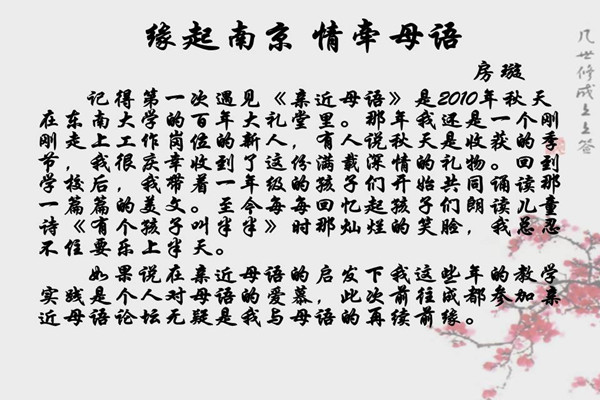 缘起南京 情牵母语
房璇
记得第一次遇见《亲近母语》是2010年秋天
在东南大学的百年大礼堂里。那年我还是一个刚
刚走上工作岗位的新人，有人说秋天是收获的季
节，我很庆幸收到了这份满载深情的礼物。回到
学校后，我带着一年级的孩子们开始共同诵读那
一篇篇的美文。至今每每回忆起孩子们朗读儿童
诗《有个孩子叫半半》时那灿烂的笑脸，我总忍
不住要乐上半天。
如果说在亲近母语的启发下我这些年的教学
实践是个人对母语的爱慕，此次前往成都参加亲
近母语论坛无疑是我与母语的再续前缘。
几世修成